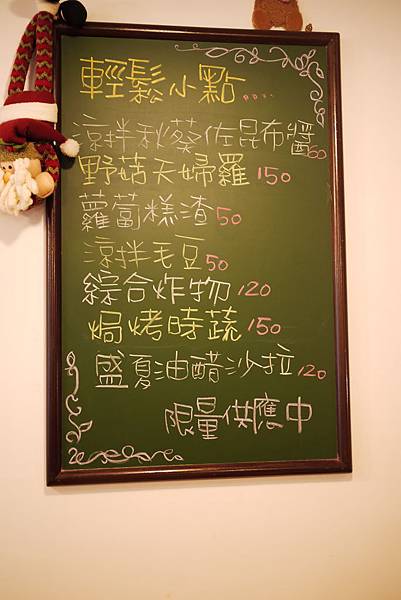 輕鬆小點....
涼拌秋葵佐昆布醬60
野菇天婦羅150
蘿蔔糕渣50
涼拌毛豆50
綜合炸物120
焗烤時蔬150
盛夏油醋沙拉120
限量供應中